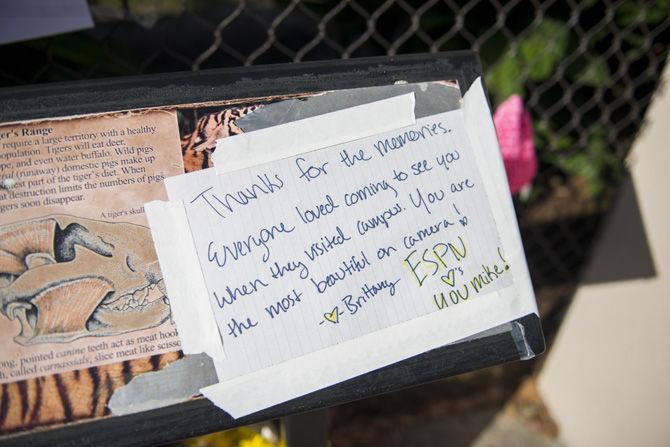 er's Range
require a large territory with a healthy
opulation. Tigers will eat deer,
ope, and even water buffalo. Wild pigs
(runaway) domestic pigs make up
est part of the tiger's diet. When
at destruction limits the numbers of pigs
gers soon disappear.
A tiger's skull
ong, pointed canine teeth act as meat hook
h, called carnassials, slice meat like scisso
Thanks for the memories.
Everyone loved coming to see you
when they visited campus. You are
the most beautiful on camera!
-♡- Brittany
ESPN
♡'s
you mike!